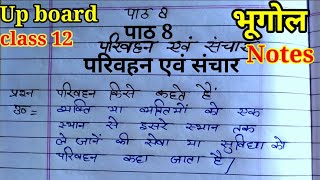 Up board
class 12
पाठ 8
पाठ 8
भूगोल
Notes
परिवहन एवं संचार
परिवहन एवं संचार
प्रश्न परिवहन किसे कहते हैं
उ०= व्यक्ति या व्यक्तियों को एक
स्थान से दूसरे स्थान तक
ले जाने की सेवा या सुविधा को
परिवहन कहा जाता है/